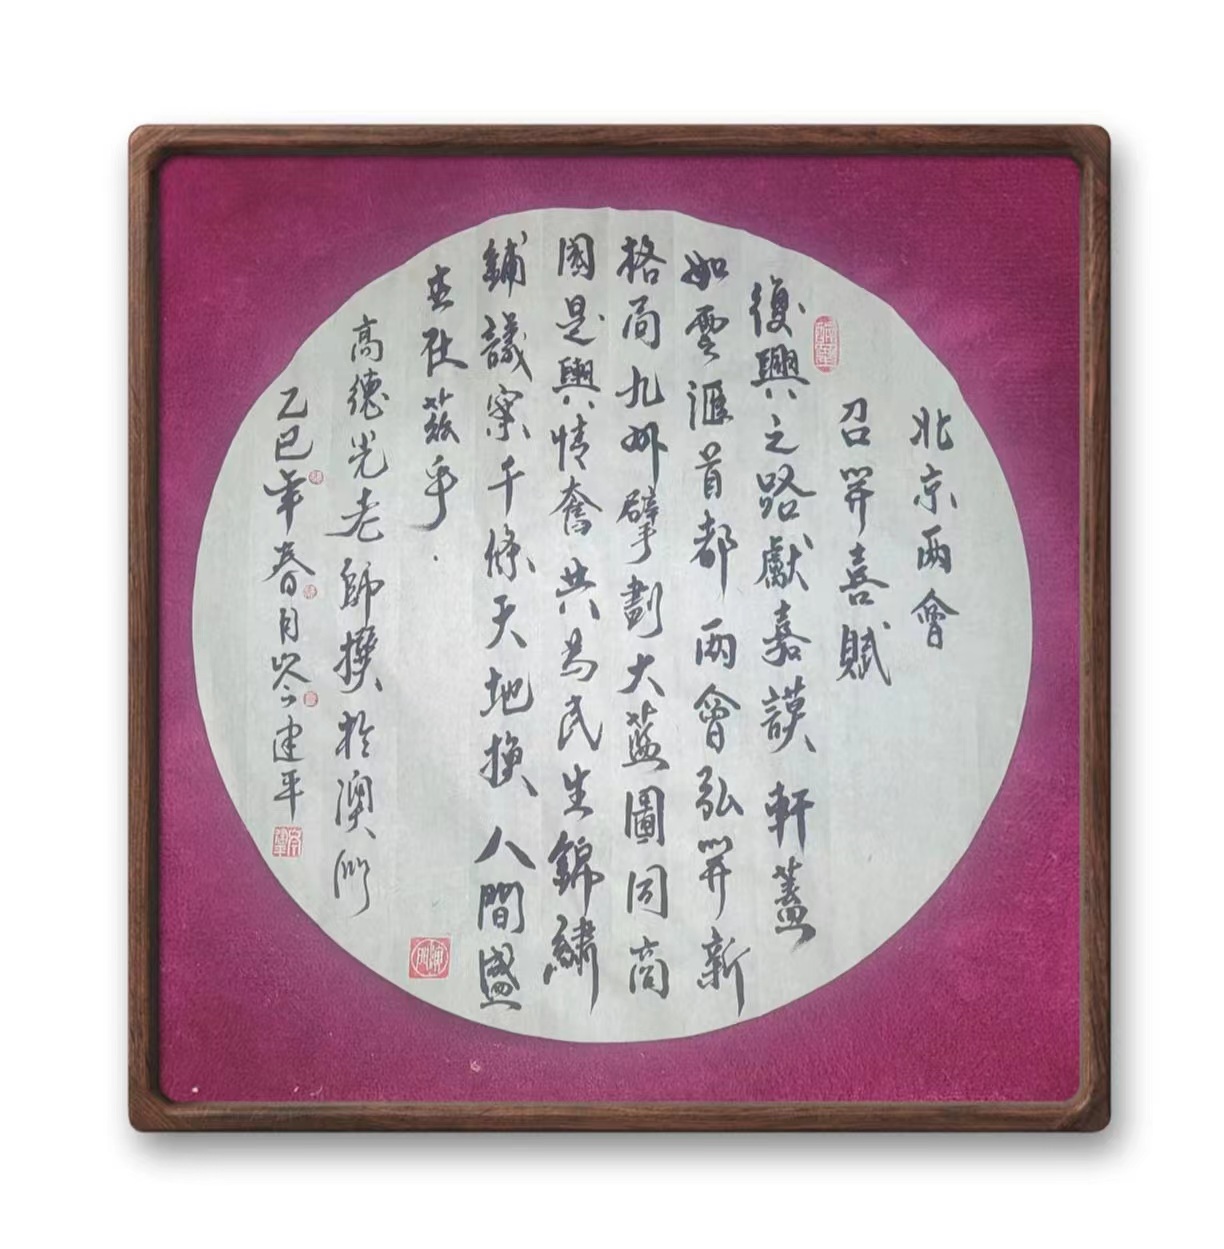 北京兩會
召開喜賦
復興之路獻嘉謨軒蓋
如雲滙首都兩會弘開新
格局九州擘劃大藍圖同商
國是輿情奮共為民生錦繡
鋪議案千條天地換人間盛
世在茲乎
高德光老師撰於澳門
乙巳年春月岑建平